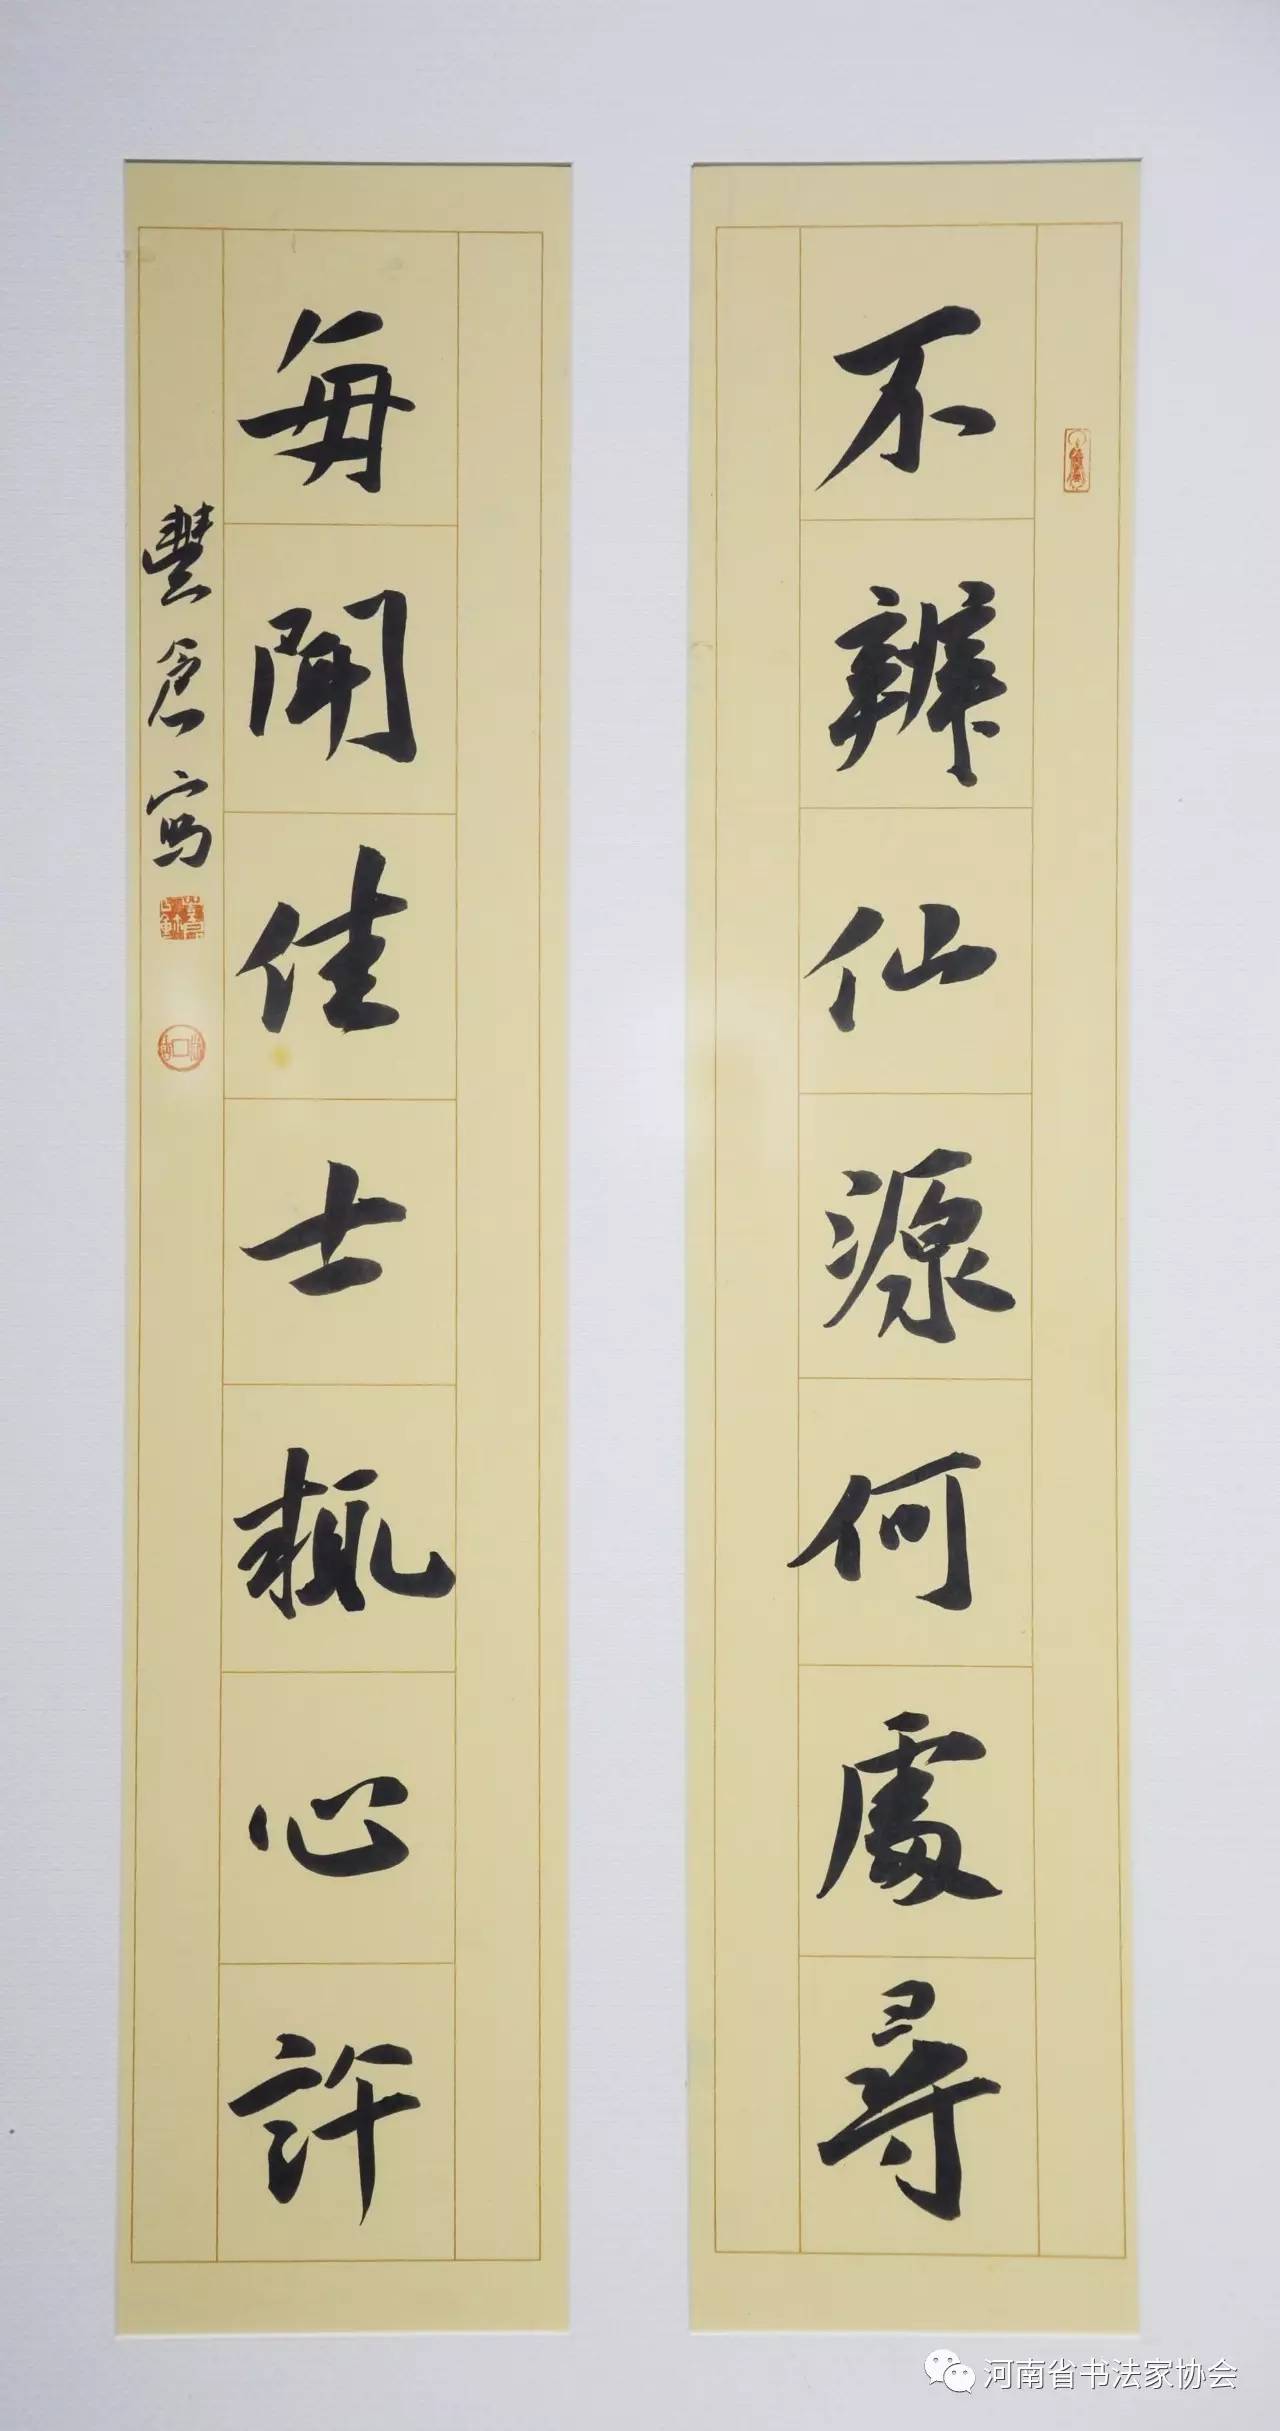 不辨仙源何處尋
每聞佳士輒心許
豐倉寫
河南省书法家协会